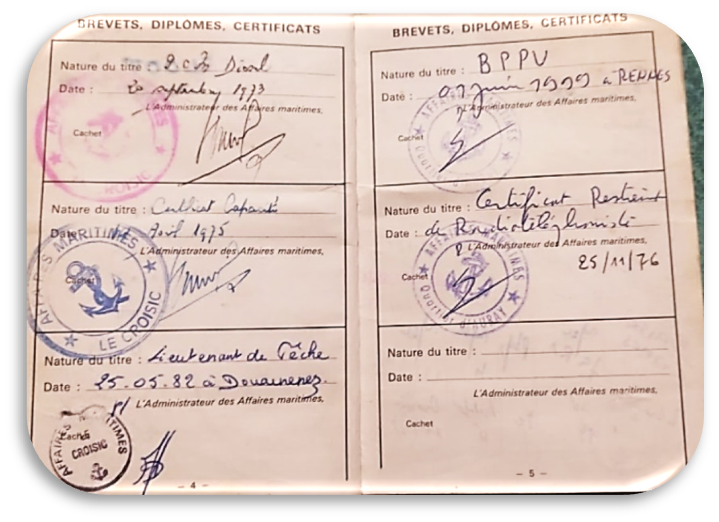 BREVETS, DIPLOMES, CERTIFICATS
Nature du titre : Diesel
Date : 20 septembre 1973
L'Administrateur des Affaires maritimes,
Cachet
CROISIC
Nature du titre : Certificat Capacité
Date : Avril 1975
L'Administrateur des Affaires maritimes,
Cachet
AFFAIRES MARITIMES
LE CROISIC
Nature du titre : Lieutenant de Pêche
Date : 25.05.82 à Douarnenez.
L'Administrateur des Affaires maritimes,
Cachet
AFFAIRES MARITIMES
CROISIC
- 4 -
BREVETS, DIPLOMES, CERTIFICATS
Nature du titre : BPPV
Date : 07 juin 1999 à RENNES
L'Administrateur des Affaires maritimes,
Cachet
AFFAIRES MARITIMES
Nature du titre : Certificat Restreint
de Radiotéléphoniste
Date :
L'Administrateur des Affaires maritimes,
25/11/76
Cachet
AFFAIRES MARITIMES
Quartier d'AURAY
Nature du titre :
Date :
L'Administrateur des Affaires maritimes,
Cachet
- 5 -